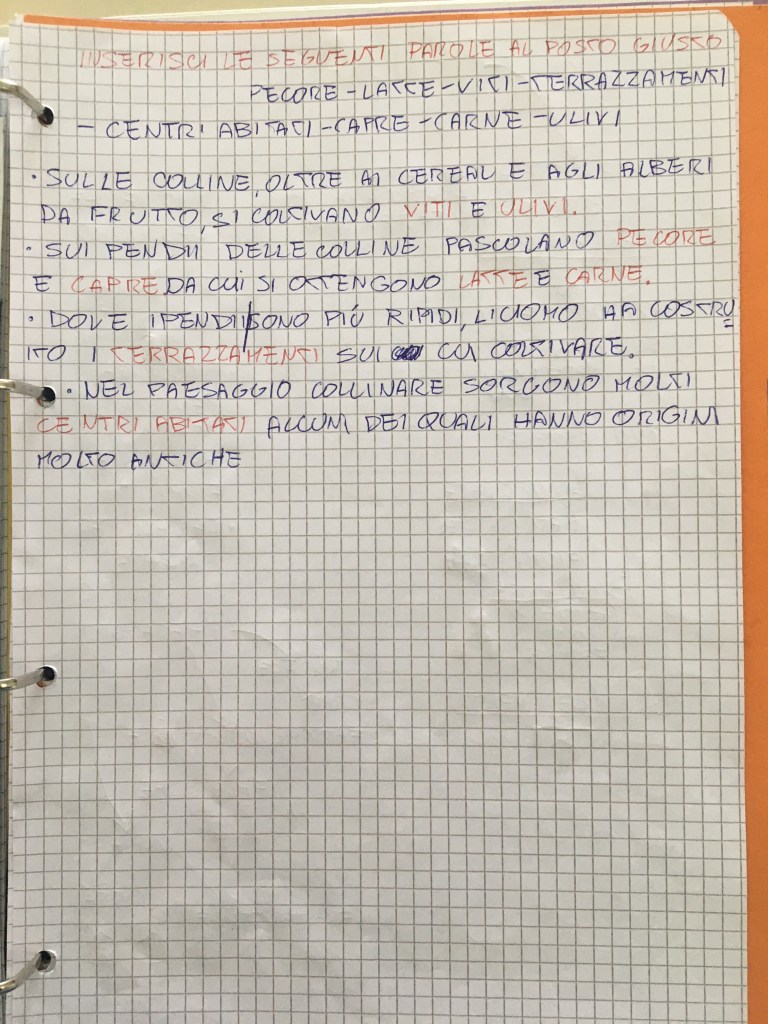 INSERISCI LE SEGUENTI PAROLE AL POSTO GIUSTO
PECORE - LATTE - VITI - TERRAZZAMENTI
- CENTRI ABITATI - CAPRE - CARNE - ULIVI
• SULLE COLLINE, OLTRE AI CEREALI E AGLI ALBERI
DA FRUTTO, SI COLTIVANO VITI E ULIVI.
• SUI PENDII DELLE COLLINE PASCOLANO PECORE
E CAPRE DA CUI SI OTTENGONO LATTE E CARNE.
• DOVE I PENDII SONO PIÚ RIPIDI, L'UOMO HA COSTRU
ITO I TERRAZZAMENTI SU CUI COLTIVARE.
• NEL PAESAGGIO COLLINARE SORGONO MOLTI
CENTRI ABITATI ALCUNI DEI QUALI HANNO ORIGINI
MOLTO ANTICHE